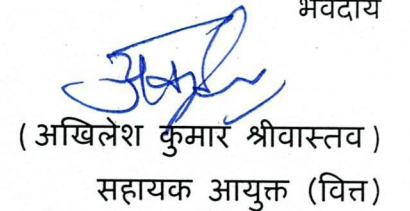 भवदीय
( अखिलेश कुमार श्रीवास्तव )
सहायक आयुक्त (वित्त)